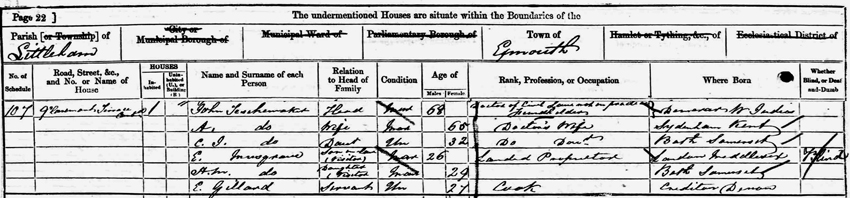 Page 22 ]
The undermentioned Houses are situate within the Boundaries of the
Parish [or Township] of
City or Municipal Borough of
Municipal Ward of
Parliamentary Borough of
Town of
Hamlet or Tything, &c., of
Ecclesiastical District of
Littleham
Exmouth
No. of Schedule
Road, Street, &c., and No. or Name of House
HOUSES
Inhabited
Uninhabited (U.), or Building (B.)
Name and Surname of each Person
Relation to Head of Family
Condition
Age of
Males
Females
Rank, Profession, or Occupation
Where Born
Whether Blind, or Deaf-and-Dumb
107 9 Terrace 1 John Teschemaker Head Mar 68 Doctor of Civil Law W Indies
A. do Wife Mar 65 Doctor's Wife Sydenham Kent
C. I. do Daur Un 32 Do Daur Bath Somerset
E. Musgrave Son in law (Visitor) Mar 26 Landed Proprietor London Middlesex Blind
do Daughter (Visitor) Mar 29 Bath Somerset
E. Gillard Servant Un 27 Cook Crediton Devon